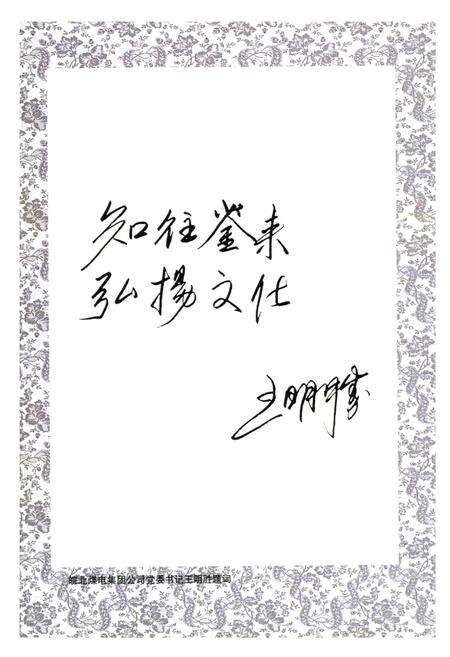 知往鉴来
弘揚文化
王明勝
皖北煤电集团公司党委书记王明胜题词